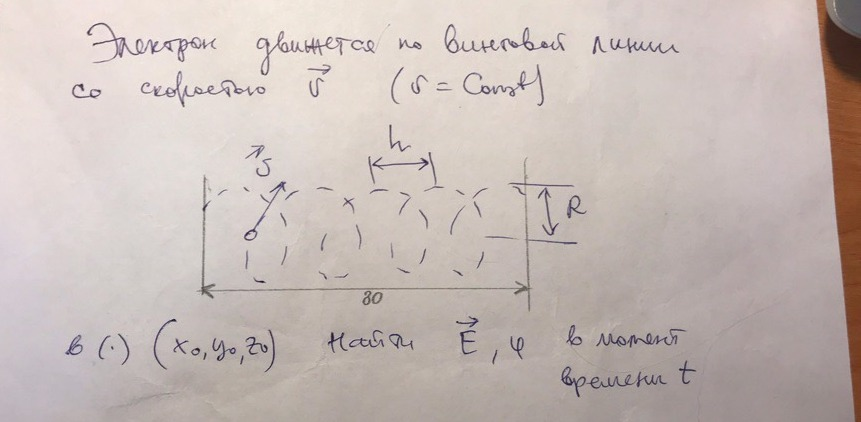 Электрон движется по винтовой линии
со скоростью v⃗ (v = Const)
v⃗
h
R
80
в (·) (x₀, y₀, z₀) Найти E⃗, φ в момент
времени t